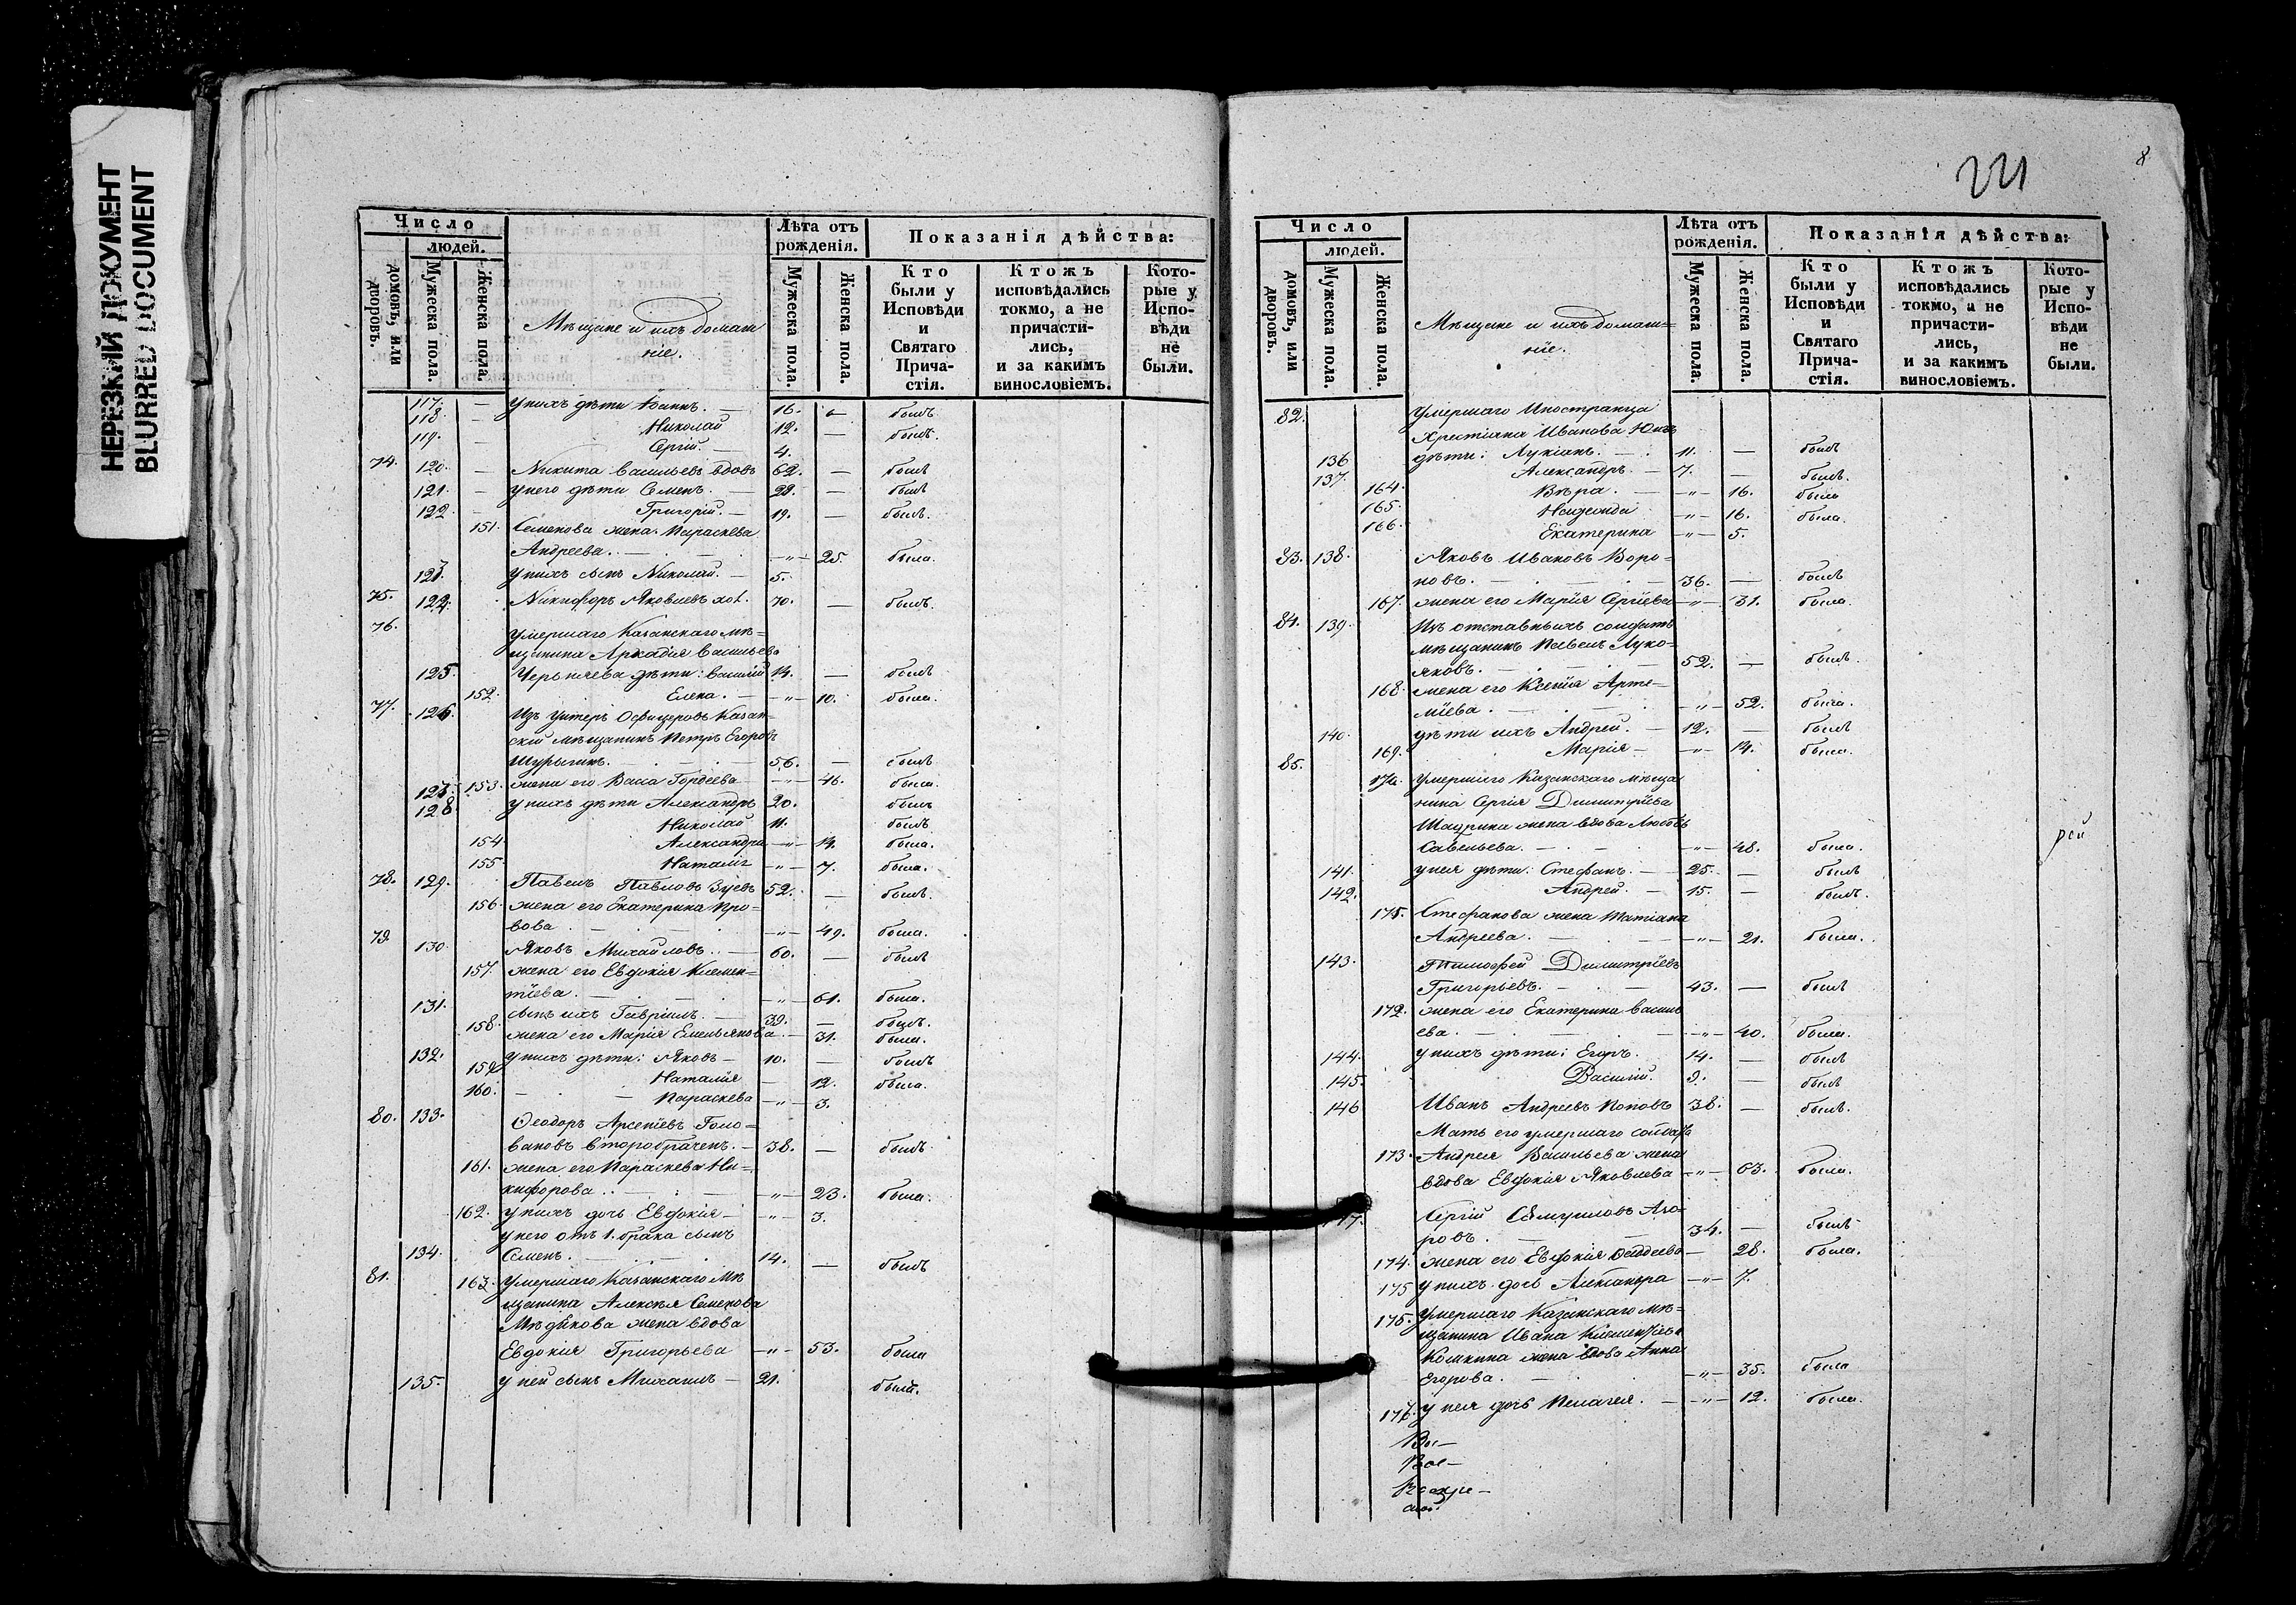 НЕРЕЗКИЙ ДОКУМЕНТ
BLURRED DOCUMENT
Число
людей.
домовъ, или дворовъ.
Мужеска пола.
Женска пола.
Мѣщане и ихъ домаш
ніе.
Лѣта отъ рожденія.
Мужеска пола.
Женска пола.
Показанія дѣйства:
Кто были у Исповѣди и Святаго Прича-стія.
Ктожъ исповѣдались токмо, а не причасти-лись, и за какимъ винословіемъ.
Кото-рые у Испо-вѣди не были.
117. — у нихъ дѣти Іоаннъ. — 16. — былъ
118. — Николай 12. — былъ.
119. — Сергій. — 4.
74. 120. — Никита Васильевъ вдовъ 62. — былъ
121. — у него дѣти Семенъ. — 22. — былъ
122. — Григорій. — 19. — былъ.
151. Семенова жена Параскева
Андреева. — " — 25. была.
123. у нихъ сынъ Николай. — 5.
75. 124. Никифоръ Яковлевъ хол. 70. — былъ.
76. умершаго Казанскаго мѣ=
щанина Аркадія Васильева
125. дѣти: Василій 14. — былъ
152. Елена. — " — 10. была.
77. 126. Изъ Унтеръ Офицеровъ Казан=
скій мѣщанинъ Петръ Егоровъ
Шурыгинъ. — 56. — былъ
153. жена его Васса Гордеева — " — 46. была.
127. у нихъ дѣти Александръ 20. былъ
128 Николай 11. былъ
154 Александра — " — 14. была.
155 Наталія — " — 7. была.
78. 129. Павелъ Павловъ Зуевъ 52. — былъ.
156. жена его Екатерина Про=
вова — " — 49. была.
79. 130. Яковъ Михайловъ. — 60. — былъ
157. жена его Евдокія Клемен=
тіева. — " — 61. была.
131. сынъ ихъ Гавріилъ. — 39. — былъ.
158. жена его Марія Емельянова — 31. была.
132. у нихъ дѣти: Яковъ — 10. — былъ
159 Наталія — 12. была.
160. Параскева — " — 3.
80. 133. Ѳеодоръ Арсеніевъ Голо=
вановъ второбраченъ. — 38. — былъ
161. жена его Параскева Ни=
кифорова. — " — 23. была.
162. у нихъ дочь Евдокія — " — 3.
у него отъ 1. брака сынъ
134. Семенъ. — 14. — былъ
81. 163. умершаго Казанскаго мѣ
щанина Алексѣя Семенова
Мѣдякова жена вдова
Евдокія Григорьева — " — 53. была
135. у ней сынъ Михаилъ — 21. былъ.
221
8
Число
людей.
домовъ, или дворовъ.
Мужеска пола.
Женска пола.
Мѣщане и ихъ домаш=
ніе.
Лѣта отъ рожденія.
Мужеска пола.
Женска пола.
Показанія дѣйства:
Кто были у Исповѣди и Святаго Прича-стія.
Ктожъ исповѣдались токмо, а не причасти-лись, и за какимъ винословіемъ.
Кото-рые у Испо-вѣди не были.
82. умершаго Иностранца
Христіана Иванова
136 дѣти: Лукіанъ. — 11. — былъ
137. Александръ. — 7. — былъ.
164. Вѣра. — " — 16. была
165. Надежда — " — 16. была.
166. Екатерина — " — 5.
83. 138. Яковъ Ивановъ Воро=
новъ. — 36. — былъ
167. жена его Марія Сергіева — " — 31. была.
84. 139. Изъ отставныхъ солдатъ
мѣщанинъ Павелъ Луко=
яновъ. — 52. — былъ.
168. жена его Ксенія Арте=
міева. — " — 52. была.
140. дѣти ихъ Андрей. — 12. — былъ
169. Марія — " — 14. была.
85. 170. умершаго Казанскаго мѣща
нина Сергія Димитріева
жена вдова Любовь
Савельева. — " — 48. была.
141. у нея дѣти: Стефанъ. — 25. — былъ
142. Андрей. — 15. — былъ.
171. Стефанова жена Татіана
Андреева. — " — 21. была.
143. Тимофей Димитріевъ
Григорьевъ. — 43. — былъ
172. жена его Екатерина Василь
ева. — " — 40. была.
144. у нихъ дѣти: Егоръ. 14. — былъ
145. Василій. 9. — былъ
146 Иванъ Андреевъ Поповъ 38. — былъ.
Мать его умершаго солдата
173. Андрея Васильева жена
вдова Евдокія Яковлева — " — 63. была.
Сергій Самуиловъ Аго=
ровъ. — 34. — былъ
174. жена его Евдокія — 28. была.
175 у нихъ дочь Александра — " — 7.
175. умершаго Казанскаго мѣ=
щанина Ивана Клементіева
Кошкина жена вдова Анна
Егорова. — " — 35. была
176. у нея дочь Пелагея. — " — 12. была.